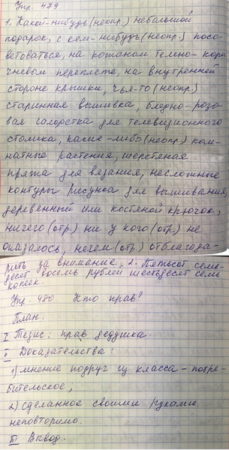 Упр. 479
1. Какой-нибудь (неопр.) небольшой
подарок, с кем-нибудь (неопр.) посо-
ветоваться, на кожаном темно-кори-
чневом переплете, на внутренней
стороне крышки, чья-то (неопр.)
старинная вышивка, бледно-розо-
вая салфетка для телевизионного
столика, какие-либо (неопр.) ком-
натные растения, шерстяная
пряжа для вязания, несложные
контуры рисунка для вышивания,
деревянный или костяной крючок,
ничего (отр.) ни у кого (отр.) не
оказалось, нечем (отр.) отблагода-
рить за внимание, 2. Пятьсот семь-
десят восемь рублей шестьдесят семь
копеек.
Упр. 480 Кто прав?
План.
I Тезис: прав дедушка.
II Доказательства
1) мнение подруг из класса - потре-
бительское;
2) сделанное своими руками
неповторимо.
III Вывод.